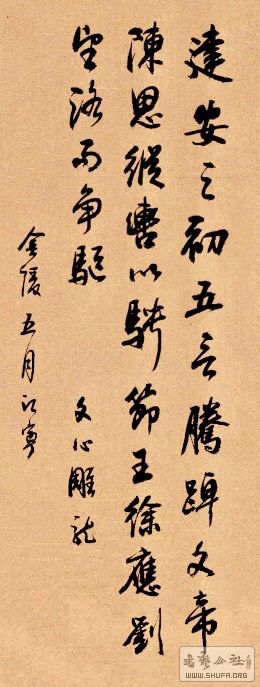 建安之初五言騰踊文帝
陳思縱轡以騁節王徐應劉
望路而争驅
文心雕龍
金陵五月江寧
書藝公社
WWW.SHUFA.ORG